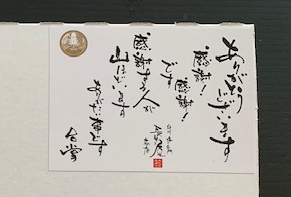 ありがとうございます
感謝!
感謝!
です
感謝する人が
山ほどいます
ありがたい事です
合掌